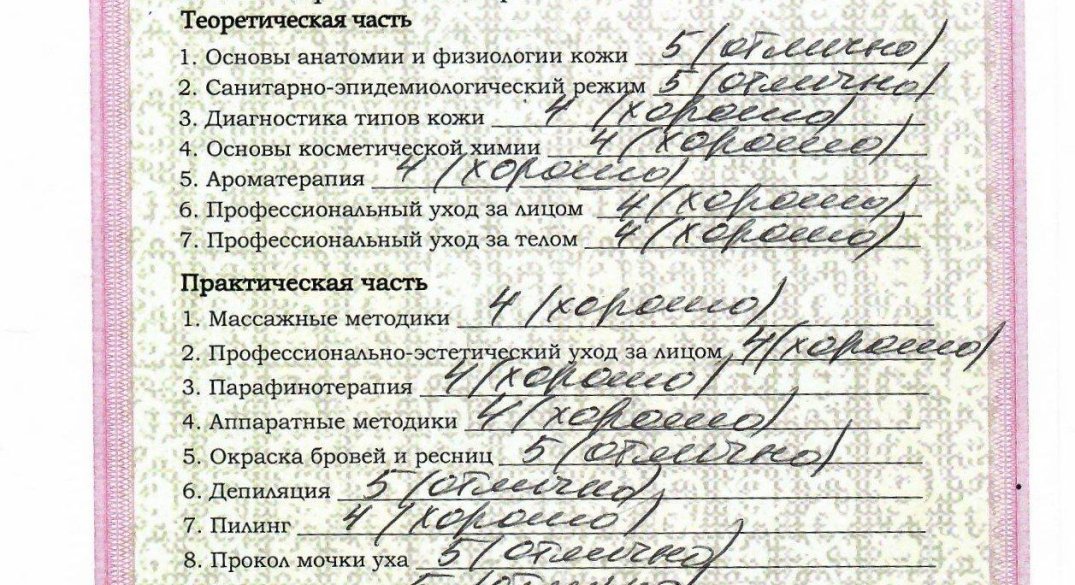 Теоретическая часть
1. Основы анатомии и физиологии кожи 5 (отлично)
2. Санитарно-эпидемиологический режим 5 (отлично)
3. Диагностика типов кожи 4 (хорошо)
4. Основы косметической химии 4 (хорошо)
5. Ароматерапия 4 (хорошо)
6. Профессиональный уход за лицом 4 (хорошо)
7. Профессиональный уход за телом 4 (хорошо)
Практическая часть
1. Массажные методики 4 (хорошо)
2. Профессионально-эстетический уход за лицом 4 (хорошо)
3. Парафинотерапия 4 (хорошо)
4. Аппаратные методики 4 (хорошо)
5. Окраска бровей и ресниц 5 (отлично)
6. Депиляция 5 (отлично)
7. Пилинг 4 (хорошо)
8. Прокол мочки уха 5 (отлично)